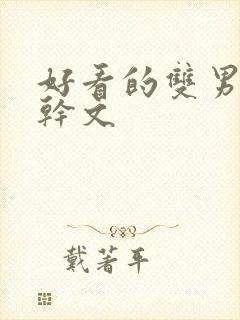 好看的雙男
幹文
戴著平